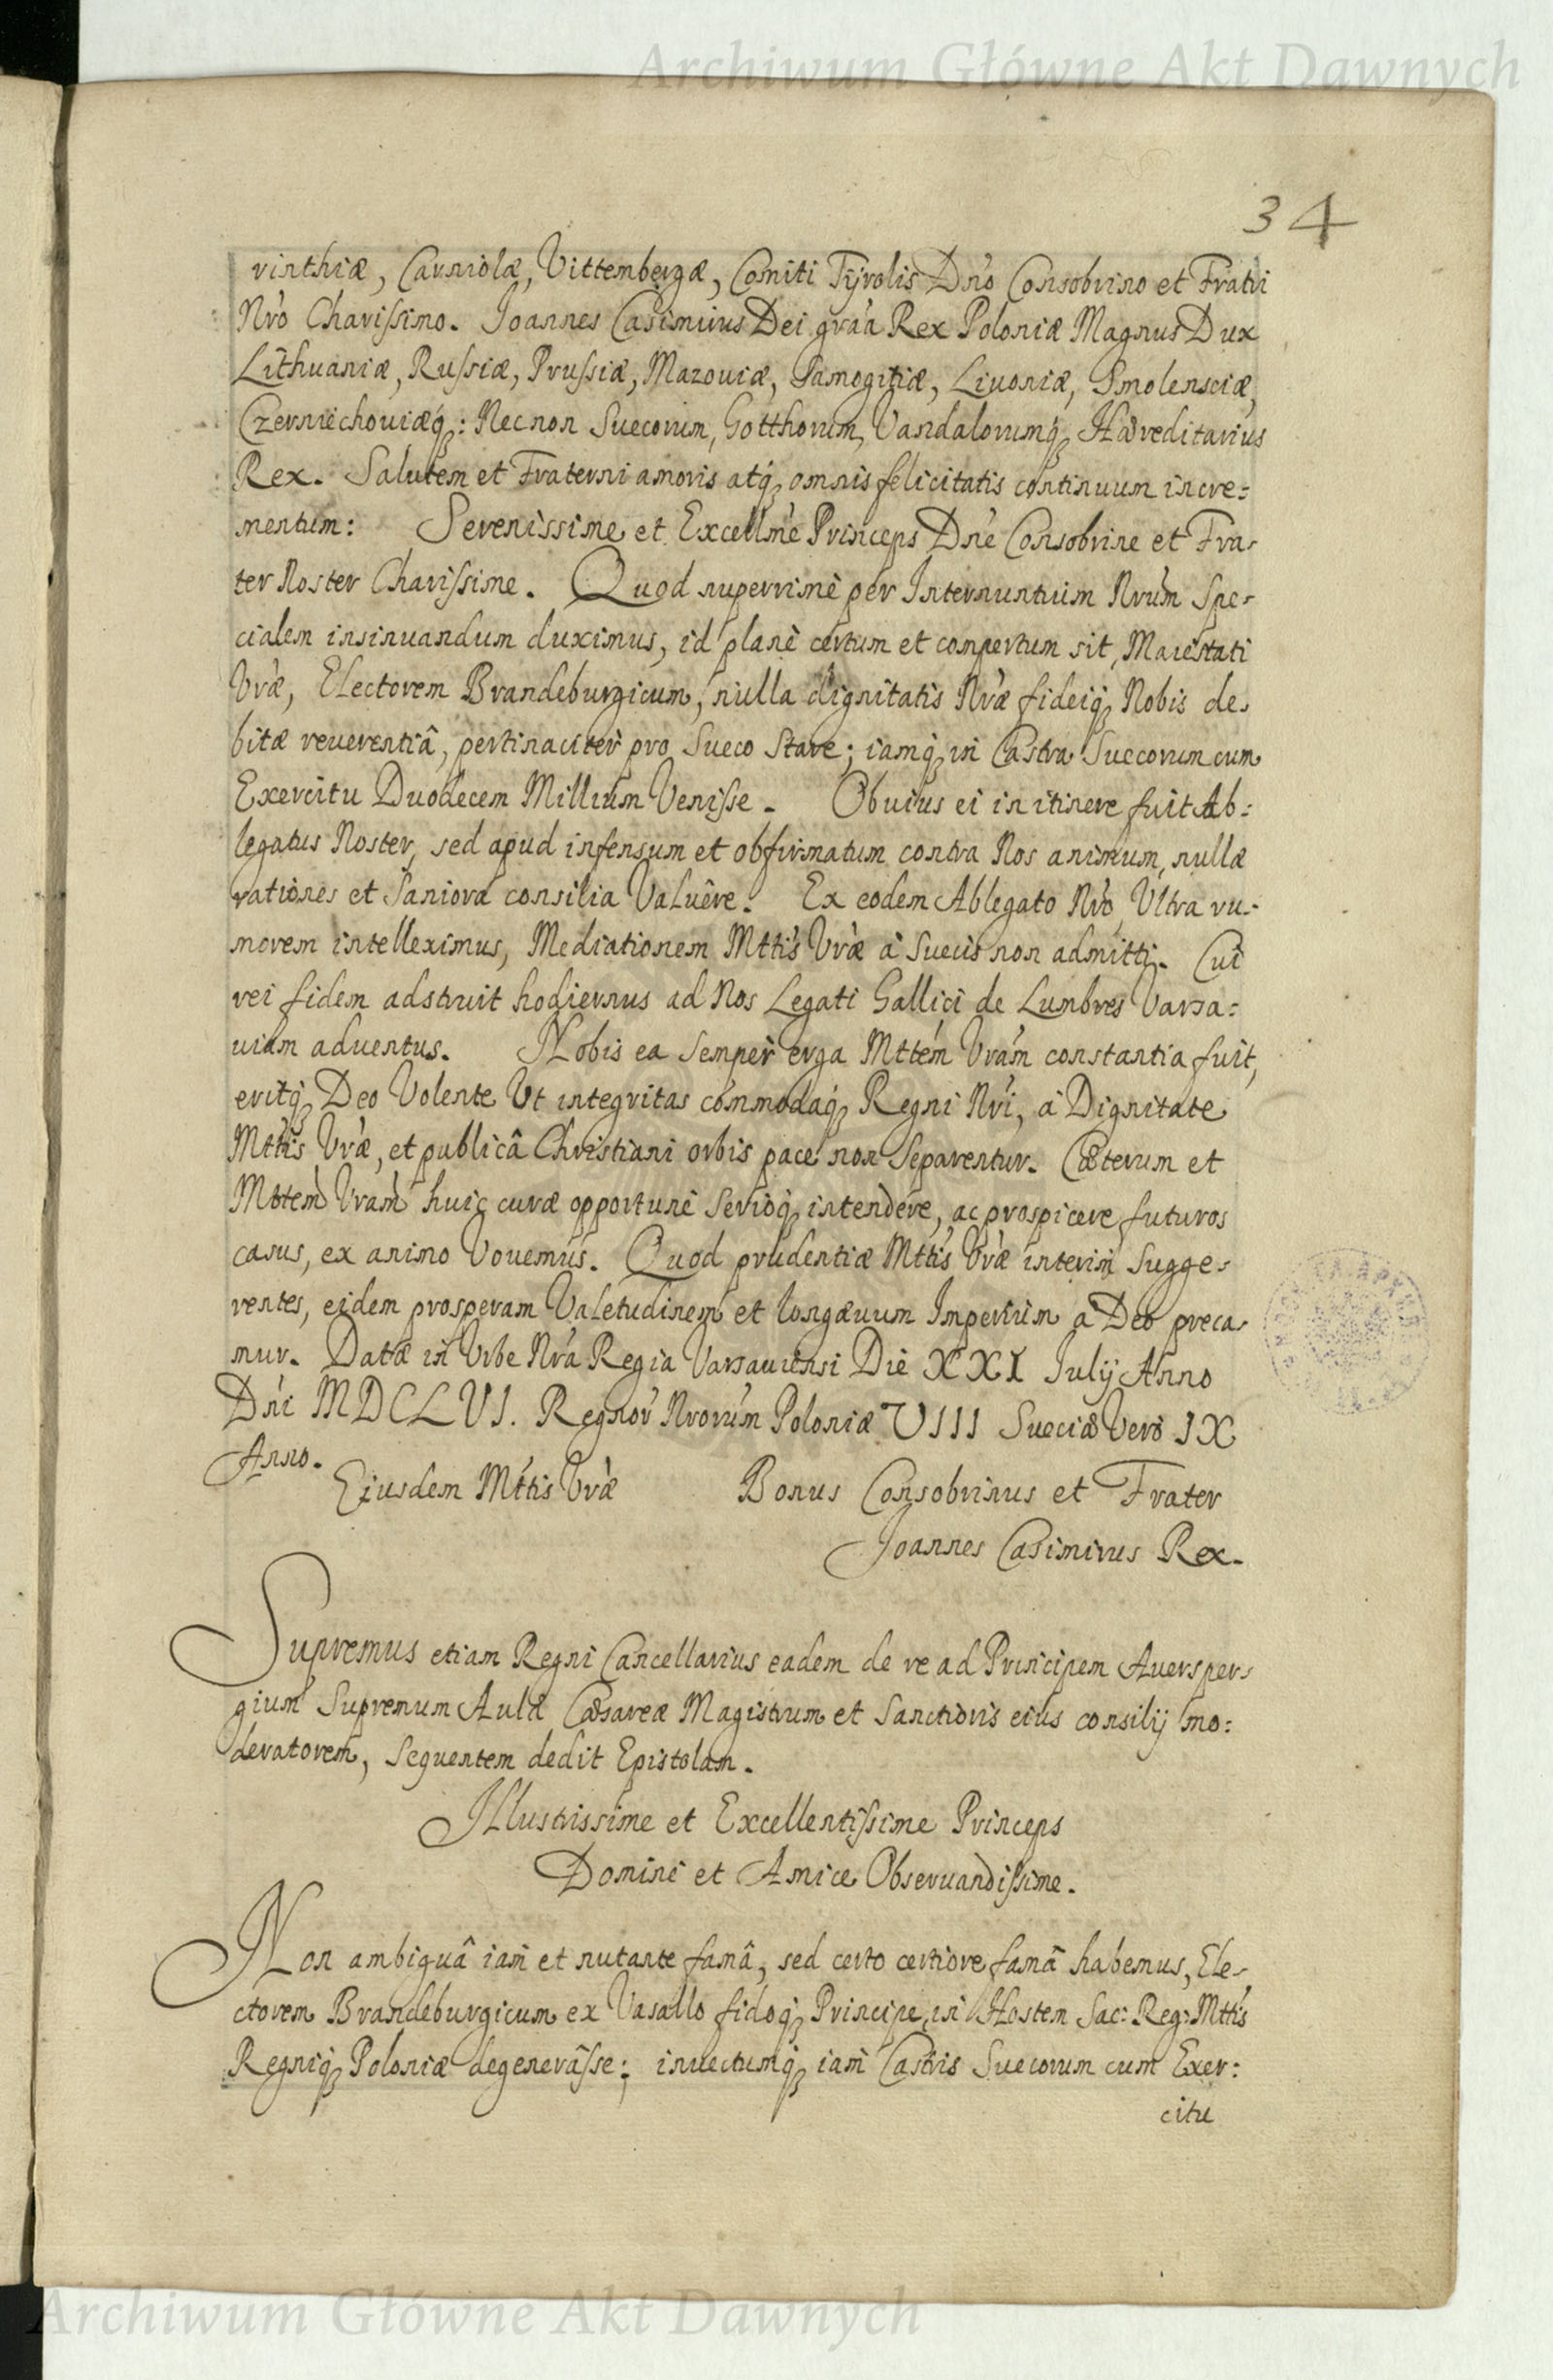 Archiwum Główne Akt Dawnych
34
rinthiæ, Carniolæ, Vittembergæ, Comiti Tÿrolis Dn̄o Consobrino et Fratri
Nr̄o Charissimo. Joannes Casimirus Dei gr̄aa Rex Poloniæ Magnus Dux
Lithuaniæ, Russiæ, Prussiæ, Mazouiæ, Samogitiæ, Liuoniæ, Smolensciæ,
Czerniechouiæq́;: Necnon Suecorum, Gotthorum, Vandalorumq́; Hæreditarius
Rex. Salutem et Fraterni amoris atq́; omnis felicitatis continuum incre:
mentum: Serenissime et Excellm̄e Princeps Dn̄e Consobrine et Fra-
ter Noster Charissime. Quod nuperrimè per Internuntium Nrūm Spe-
cialem insinuandum duximus, id planè certum et compertum sit, Maiestati
Vræ, Electorem Brandeburgicum, nulla dignitatis Nræ fideiq́; Nobis de-
bitæ reuerentiâ, pertinaciter pro Sueco Stare; iamq́; in Castra Suecorum cum
Exercitu Duodecem Millium Venisse. Obuius ei in itinere fuit Ab:
legatus Noster, sed apud infensum et obfirmatum contra Nos animum, nullæ
rationes et Saniora consilia Valuêre. Ex eodem Ablegato Nrō Ultra ru-
morem intelleximus, Mediationem Mttis Vræ à Suecis non admitti. Cui
rei fidem adstruit hodiernus ad Nos Legati Gallici de Lumbres Varsa:
uiam aduentus. Nobis ea Semper erga Mttém Vrám constantia fuit,
eritq́; Deo Volente Ut integritas commodaq́; Regni Nri, à Dignitate
Mttis Vræ, et publicâ Christiani orbis pace non Separentur. Cæterum et
Mttem Vram huic curæ opportunè Serioq́; intendere, ac prospicere futuros
casus, ex animo Vouemus. Quod prudentiæ Mttis Vræ interim Sugge-
rentes, eidem prosperam Valetudinem et longæuum Imperium a Deo preca-
mur. Datæ in Urbe Nrā Regia Varsauiensi Die XXI Iulij Anno
Dn̄i MDCLVI. Regnor̄ Nrorūm Poloniæ VIII Sueciæ Verò IX
Anno.
Eiusdem Mttis Vræ Bonus Consobrinus et Frater
Joannes Casimirus Rex.
Supremus etiam Regni Cancellarius eadem de re ad Principem Auersper-
gium Supremum Aulæ Cæsareæ Magistrum et Sanctioris eius consilij mo:
deratorem, Sequentem dedit Epistolam.
Illustrissime et Excellentissime Princeps
Domine et Amice Obseruandissime.
Non ambiguâ iam et nutante famâ, sed certo certiore famâ habemus, Ele-
ctorem Brandeburgicum ex Vasallo fidoq́; Principe, in Hostem Sac: Reg: Mttis
Regniq́; Poloniæ degenerâsse; inuectumq́; iam Castris Suecorum cum Exer:
citu
Archiwum Główne Akt Dawnych